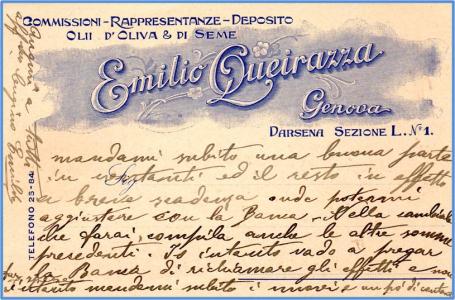 COMMISSIONI - RAPPRESENTANZE - DEPOSITO
OLII D'OLIVA & DI SEME
Emilio Queirazza
Genova
DARSENA SEZIONE L. N.º 1.
TELEFONO 25-84
mandami subito una buona parte
in contanti ed il resto in effetto
a breve scadenza onde potermi
aggiustare con la Banca. Nella cambiale
che farai, compila anche le altre somme
precedenti. Io intanto vado a pregar
la Banca di richiamare gli effetti e non
intanto mandami subito i nuovi e un po' di contanti